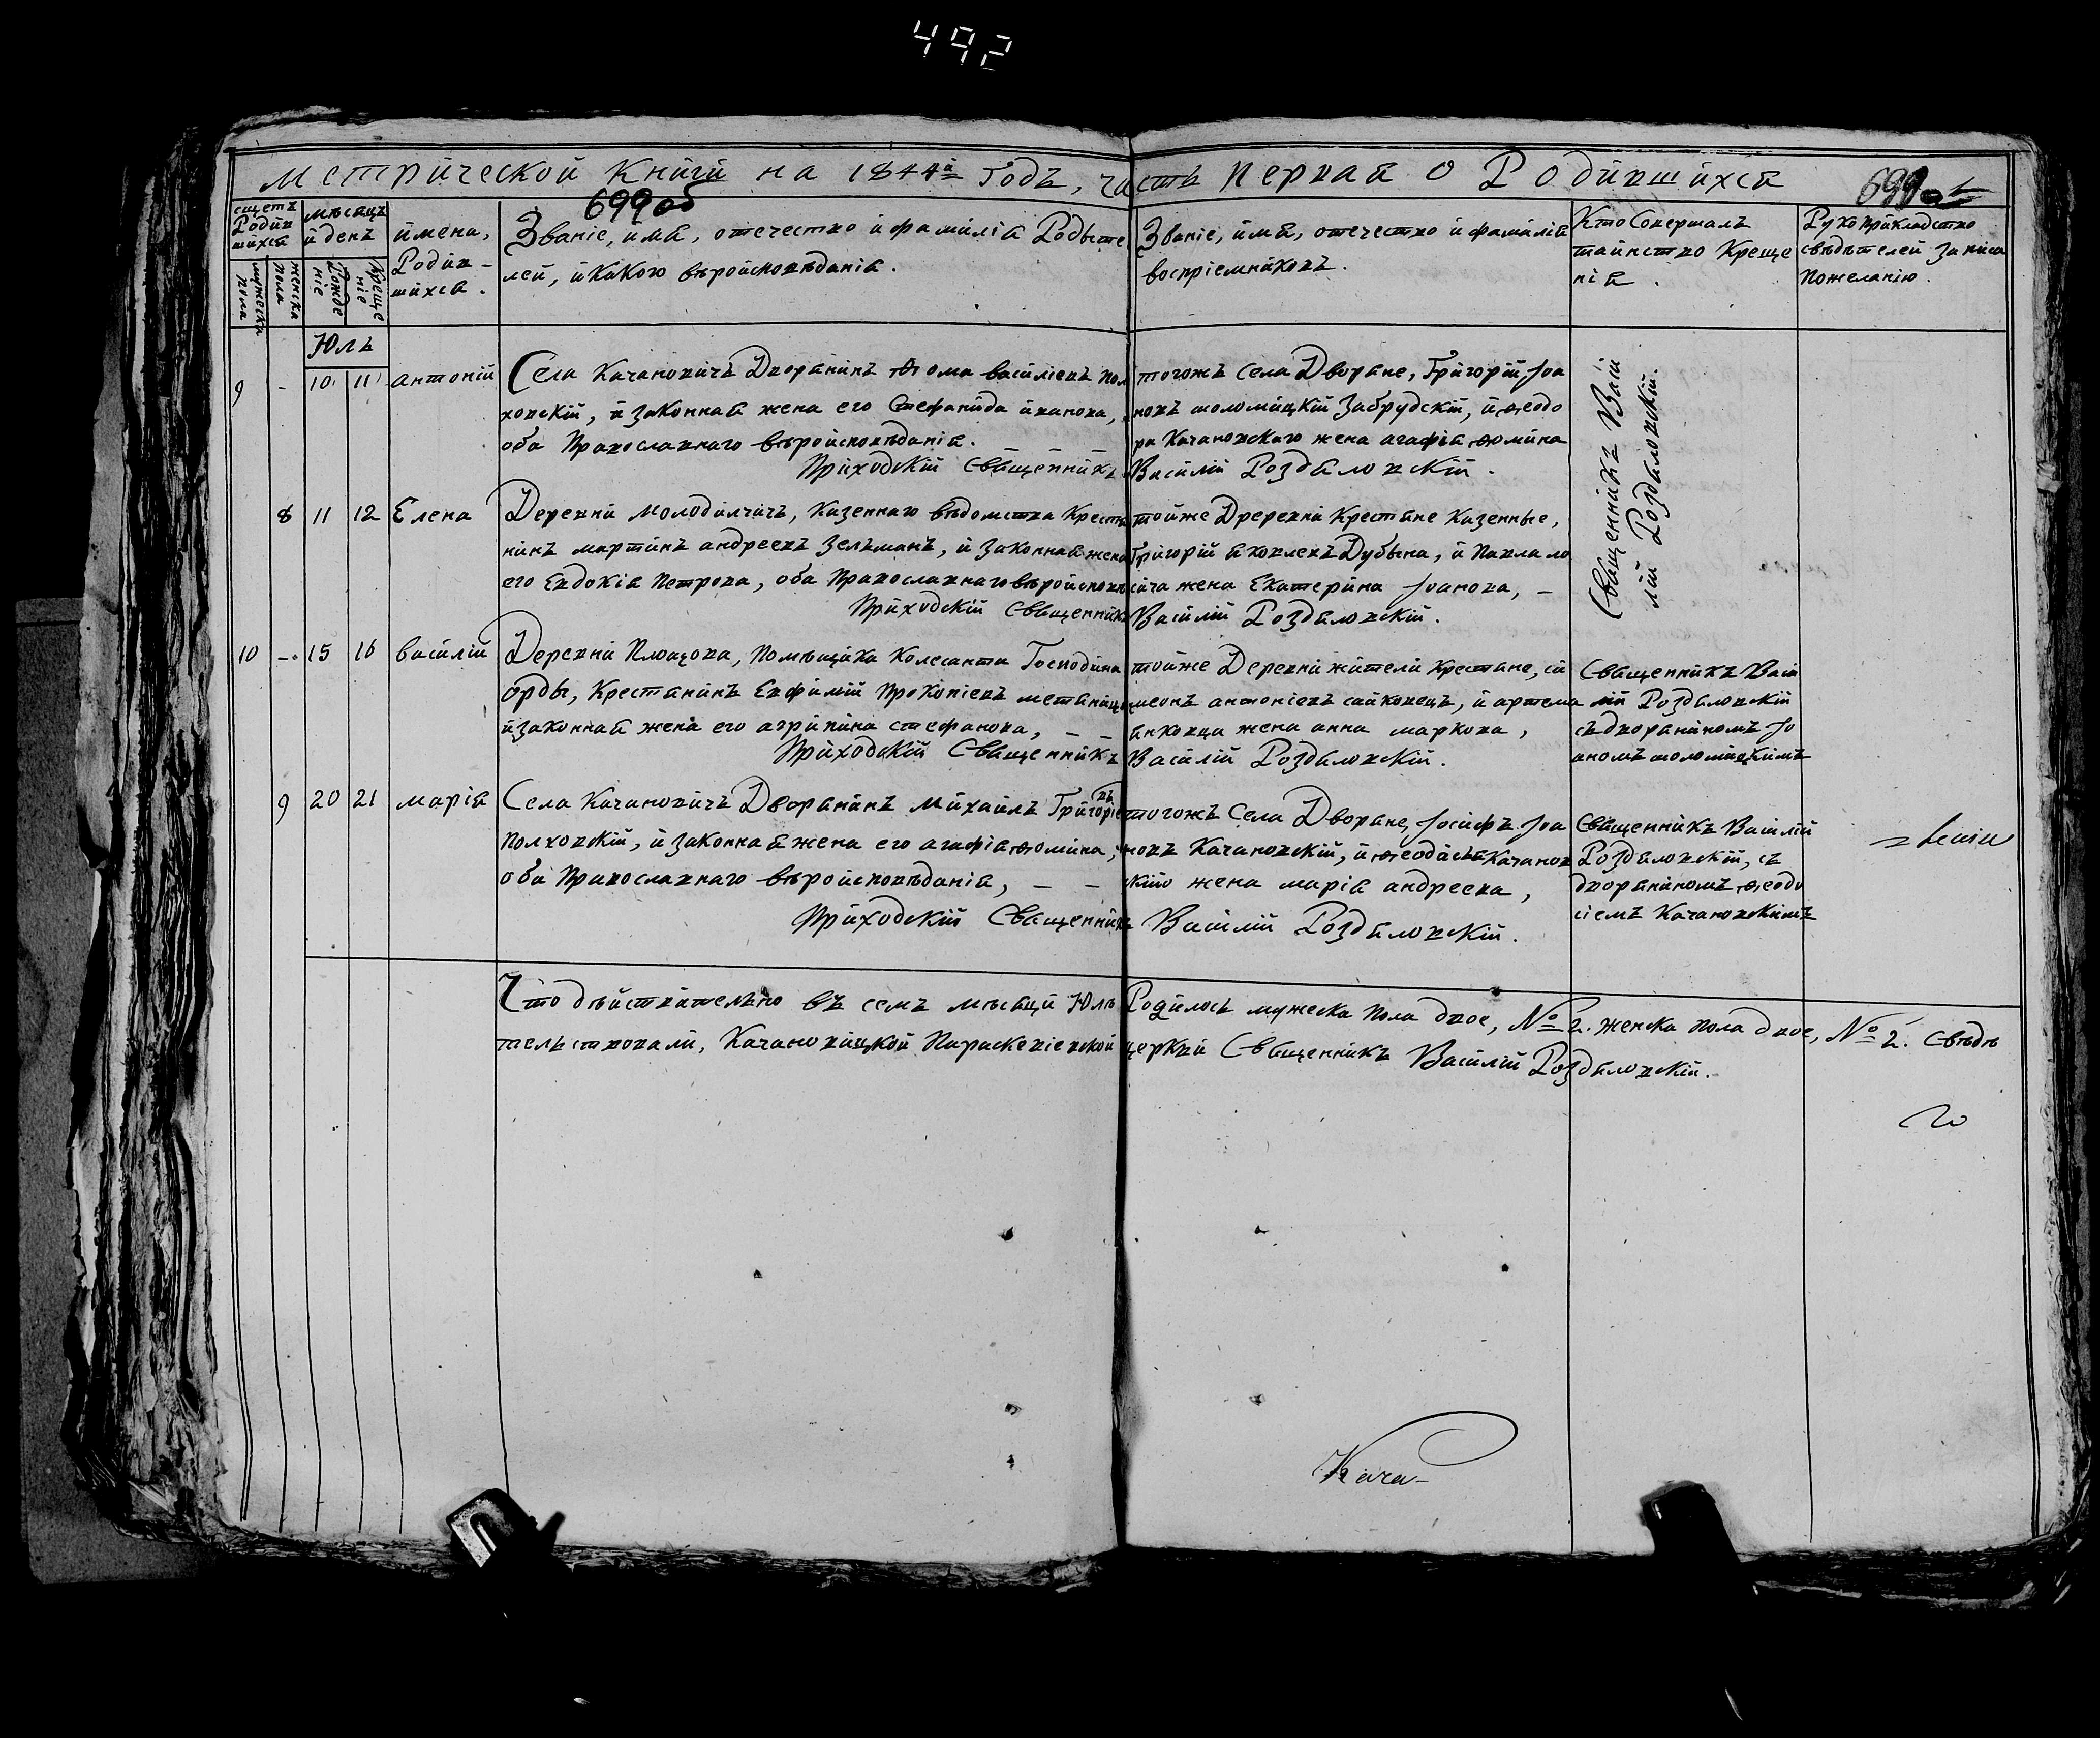 492
Метрической Книги на 1844й Годъ, часть первая о Родившихся
699 об
счетъ Родившихся
мужеска пола
женска пола
мѣсяцъ и денъ
Рождение
Крещение
имена, Родившихся.
Званіе, имя, отечество и фамилія Родытелей, и какого вѣроисповѣданія.
Званіе, имя, отечество и фамилія воспріемниковъ.
Кто Совершалъ таинство Крещенія.
Рукоприкладство свѣдѣтелей записа пожеланію.
Юль
9 - 10 11 антоній
Села Качановичъ Дворанинъ Ѳома василіевъ Пол
ховскій, и законная жена его Стефанида иванова,
оба Православнаго вѣроисповѣданія.
Приходскій Священникъ
тогожъ Села Дворане, Григорій Іоа
новъ толомицкій Забрудскій, и Ѳеодо
ра Качановскаго жена агафія Ѳомина
Василій Роздяловскій.
Священникъ Васи
лій Роздяловскій.
8 11 12 Елена
Деревни Молодилчичъ, Казеннаго вѣдомства Крестя
нинъ мартинъ андреевъ Зелъманъ, и Законная жена
его Евдокія Петрова, оба Православнаго вѣроисповѣ
Приходскій Священникъ
тойже Дреревни Крестяне Казенные,
Григорій яковлевъ Дубына, и Павла ло
сича жена Екатерина Іоанова, –
Василій Роздяловскій.
10 – 15 16 василій
Деревни Площова, Помѣщика Колесанта Господина
Орды, Крестанинъ Евфимій Прокопіевъ метаница
и законная жена его агрипина стефанова, – –
Приходскій Священникъ
тойже Деревни жители крестане, си
меонъ антоніевъ сайковецъ, и артема
янковца жена анна маркова,
Василій Роздяловскій.
Священникъ Васи
лій Роздяловскій
съ двораниномъ Іо
аномъ толомицкимъ
9 20 21 марія
Села Качановичъ Дворанинъ Михаилъ Григоріевъ
Полховскій, и законная жена его агафія Ѳомина,
оба Православнаго вѣроисповѣданія, – –
Приходскій Священникъ
тогожъ Села Дворане, Іосифъ Іоа
новъ Качановскій, и Ѳеодосія Качанов
скаго жена марія андреева,
Василій Роздяловскій.
Священникъ Василій
Роздяловскій, съ
двораниномъ Ѳеодо
сіемъ Качановскимъ
Что дѣйствително въ семъ мѣсяци Юлѣ Родилось мужеска пола двое, № 2. женска пола двое, № 2. Свѣдѣ
телствовали, Качановицкой Параскевіевской церкви Священникъ Василій Роздяловскій.
Кача-